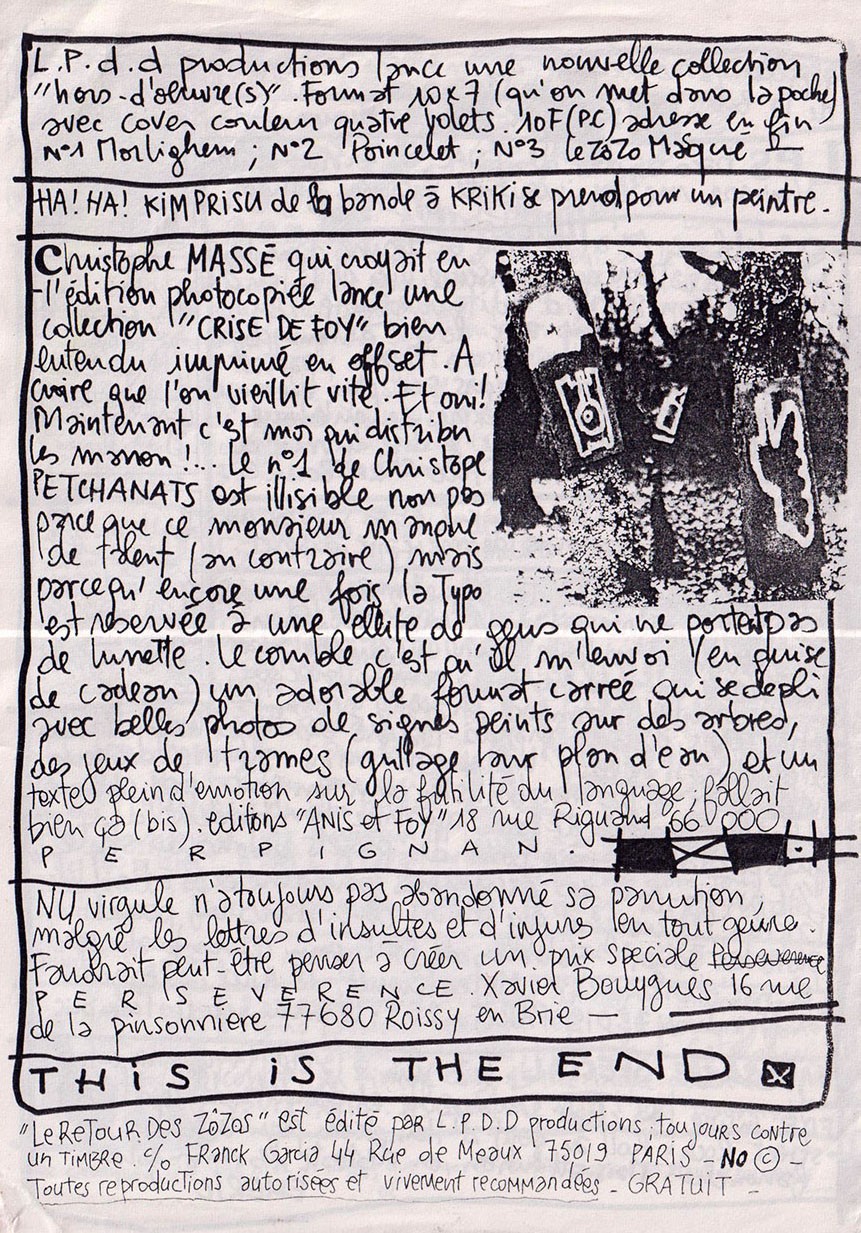 L.P.d.d productions lance une nouvelle collection
"hors-d'oeuvre(s)". Format 10x7 (qu'on met dans la poche)
avec cover couleur quatre volets. 10F(PC) adresse en fin
N°1 Morlighem ; N°2 Poincelet ; N°3 le ZôZo Masqué
HA! HA! KIM PRISU de la bande à KRIKI se prend pour un peintre.
Christophe MASSÉ qui croyait en
l'édition photocopiée lance une
collection "CRISE DE FOY" bien
entendu imprimé en offset. A
croire que l'on vieillit vite. Et oui!
Maintenant c'est moi qui distribu
les marron !... Le n°1 de Christope
PETCHANATS est illisible non pas
parce que ce monsieur manque
de talent (au contraire) mais
parcequ'encore une fois la Typo
est réservée à une élite de gens qui ne portent pas
de lunette. Le comble c'est qu'il m'envoi (en guise
de cadeau) un adorable format carrée qui se depli
avec belles photos de signes peints sur des arbres,
des jeux de trames (grillage sur plan d'eau) et un
texte plein d'emotion sur la futilité du language; fallait
bien ça (bis). editons "ANIS et FOY" 18 rue Rigaud 66 000
P E R P I G N A N .
NU virgule n'a toujours pas abandonné sa parution
malgré les lettres d'insultes et d'injures en tout genre.
Faudrait peut-être penser à créer un prix speciale
P E R S E V E R E N C E . Xavier Bouygues 16 rue
de la pinsonniere 77680 Roissy en Brie —
THiS iS THE END
"Le ReTouR Des ZôZos" est édité par L.P.D.D productions; toujours contre
un TIMBRE. c/o FRanck Garcia 44 Rue de Meaux 75019 PARIS - NO © -
Toutes reproductions autorisées et vivement recommandées - GRATUIT -